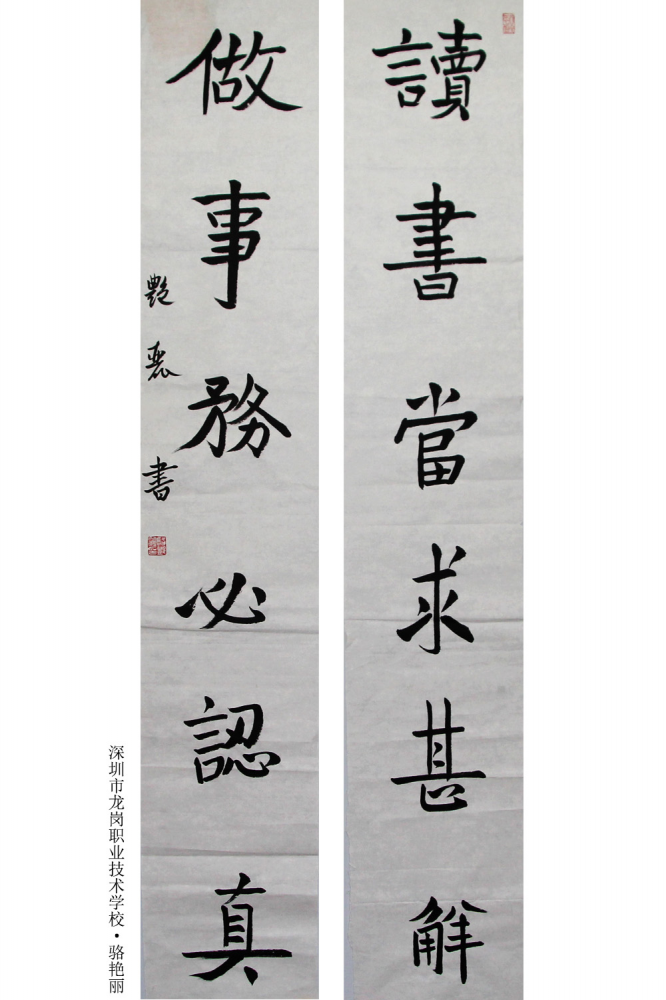 讀書當求甚解
做事務必認真
艷麗書
深圳市龙岗职业技术学校·骆艳丽